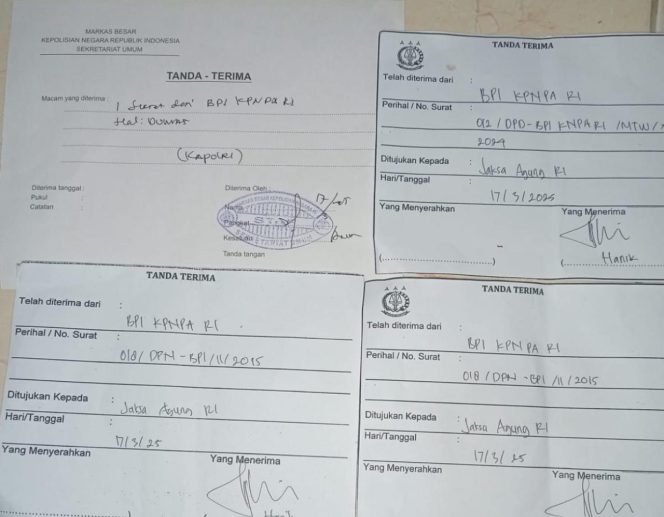 MARKAS BESAR
KEPOLISIAN NEGARA REPUBLIK INDONESIA
SEKRETARIAT UMUM
TANDA - TERIMA
Macam yang diterima : 1 Surat dari BPI KPNPA RI
Hal: DUMAS
(Kapolri)
Diterima tanggal :
Pukul :
Catatan
Diterima Oleh :
Nama
Pangkat
Kesatuan
SEKRETARIAT UMUM
Tanda tangan
TANDA TERIMA
Telah diterima dari :
BPI KPNPA RI
Perihal / No. Surat :
012 / DPD-BPI KNPA RI /MTW/
2024
Ditujukan Kepada : Jaksa Agung RI
Hari/Tanggal :
17/3/2025
Yang Menyerahkan Yang Menerima
(....................) (.......... Hanik
TANDA TERIMA
Telah diterima dari :
BPI KPNPA RI
Perihal / No. Surat :
018/ DPN-BPI/II/2015
Ditujukan Kepada : Jaksa Agung RI
Hari/Tanggal :
17/3/25
Yang Menyerahkan Yang Menerima
TANDA TERIMA
Telah diterima dari :
BPI KPNPA RI
Perihal / No. Surat :
018 / DPN-BPI/II/2015
Ditujukan Kepada : Jaksa Agung RI
Hari/Tanggal :
17/3/25
Yang Menyerahkan Yang Menerima